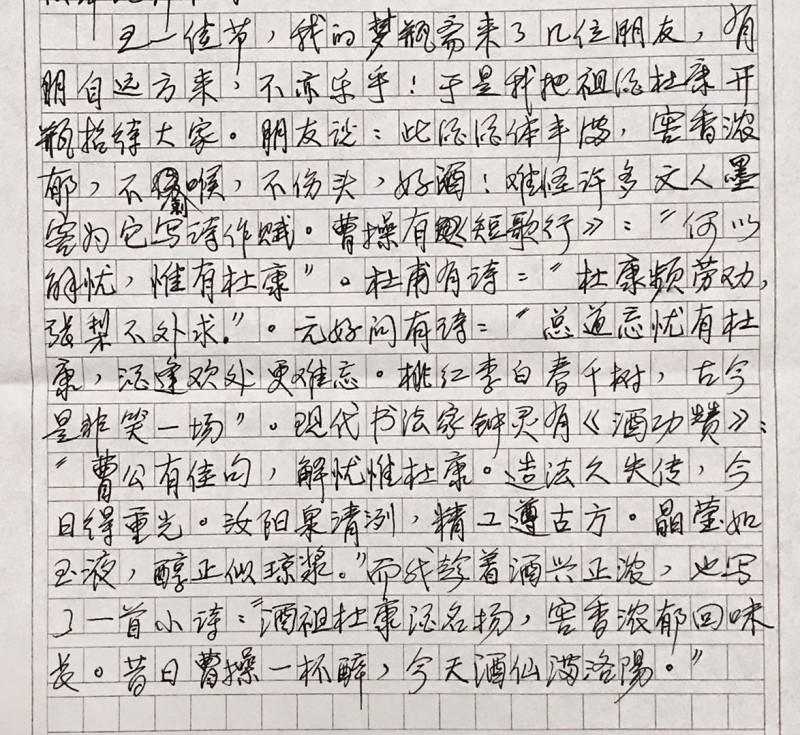 五一佳节，我的梦瓶斋来了几位朋友，有
朋自远方来，不亦乐乎！于是我把祖酒杜康开
瓶招待大家。朋友说：此酒酒体丰满，窖香浓
郁，不刺喉，不伤头，好酒！难怪许多文人墨
客为它写诗作赋。曹操有《短歌行》：“何以
解忧，惟有杜康”。杜甫有诗：“杜康频劳劝，
张梨不外求。”。元好问有诗：“总道忘忧有杜
康，酒逢欢处更难忘。桃红李白春千树，古今
是非笑一场”。现代书法家钟灵有《酒功赞》：
“曹公有佳句，解忧惟杜康。造法久失传，今
日得重光。汝阳泉清洌，精工遵古方。晶莹如
玉液，醇正似琼浆。”而我趁着酒兴正浓，也写
了一首小诗：“酒祖杜康酒名扬，窖香浓郁回味
长。昔日曹操一杯醉，今天酒仙满洛陽。”